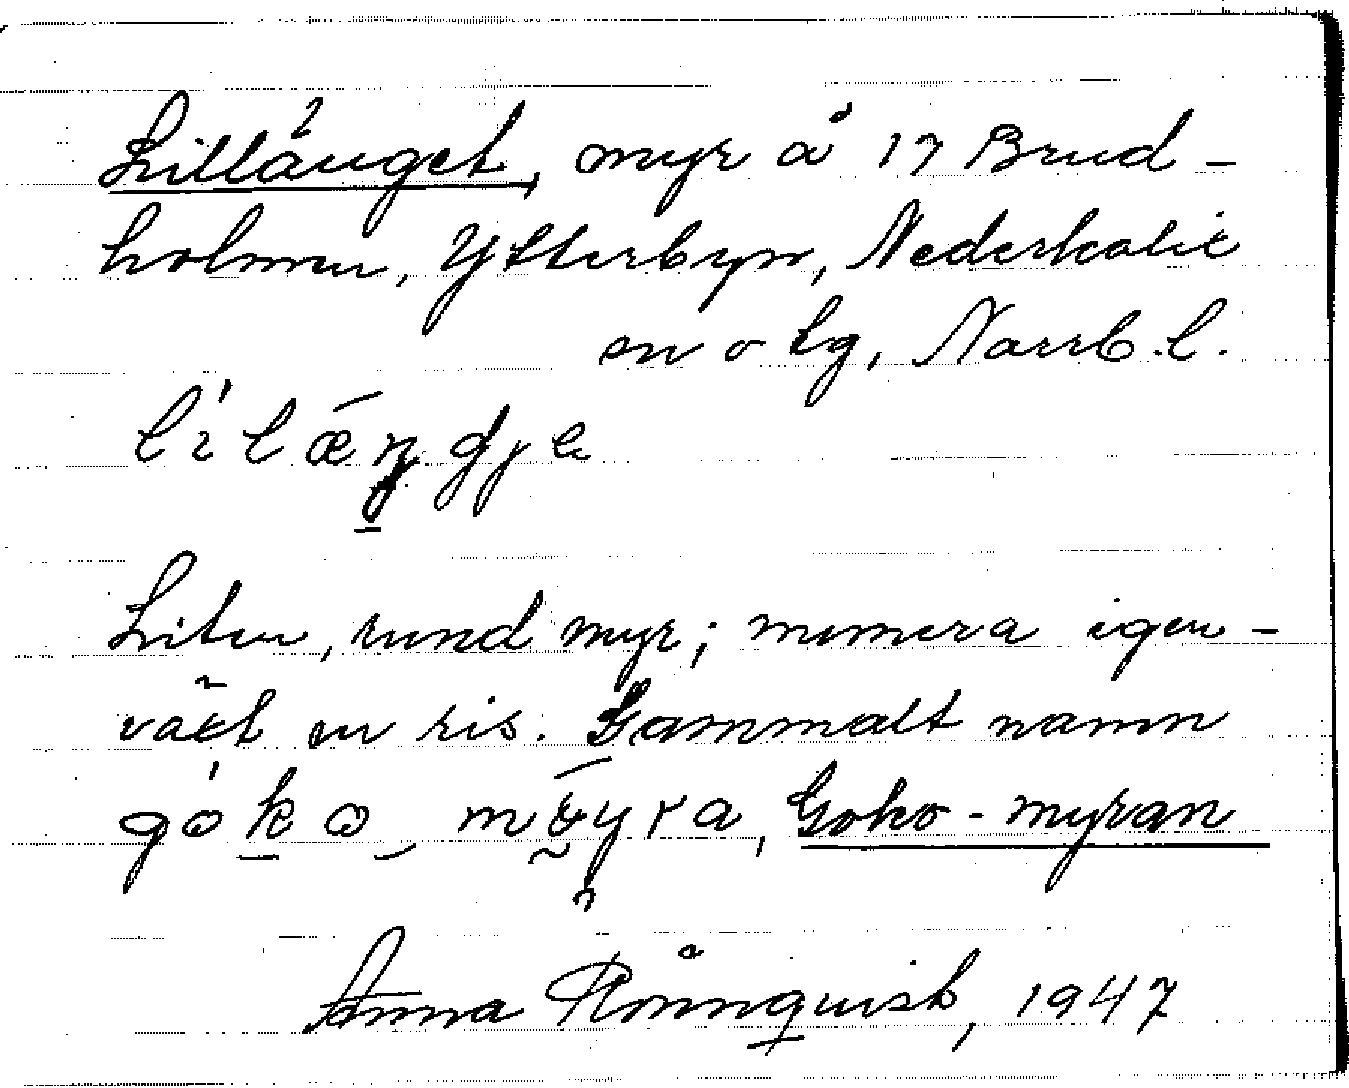 Lillänget, myr å 17 Brud-
holmen, Ytterbyn, Nederkalix
sn o tg, Norrb. l.
Liten, rund myr; numera igen-
växt av ris. Gammalt namn
Goko-myran
Anna Rönnquist, 1947